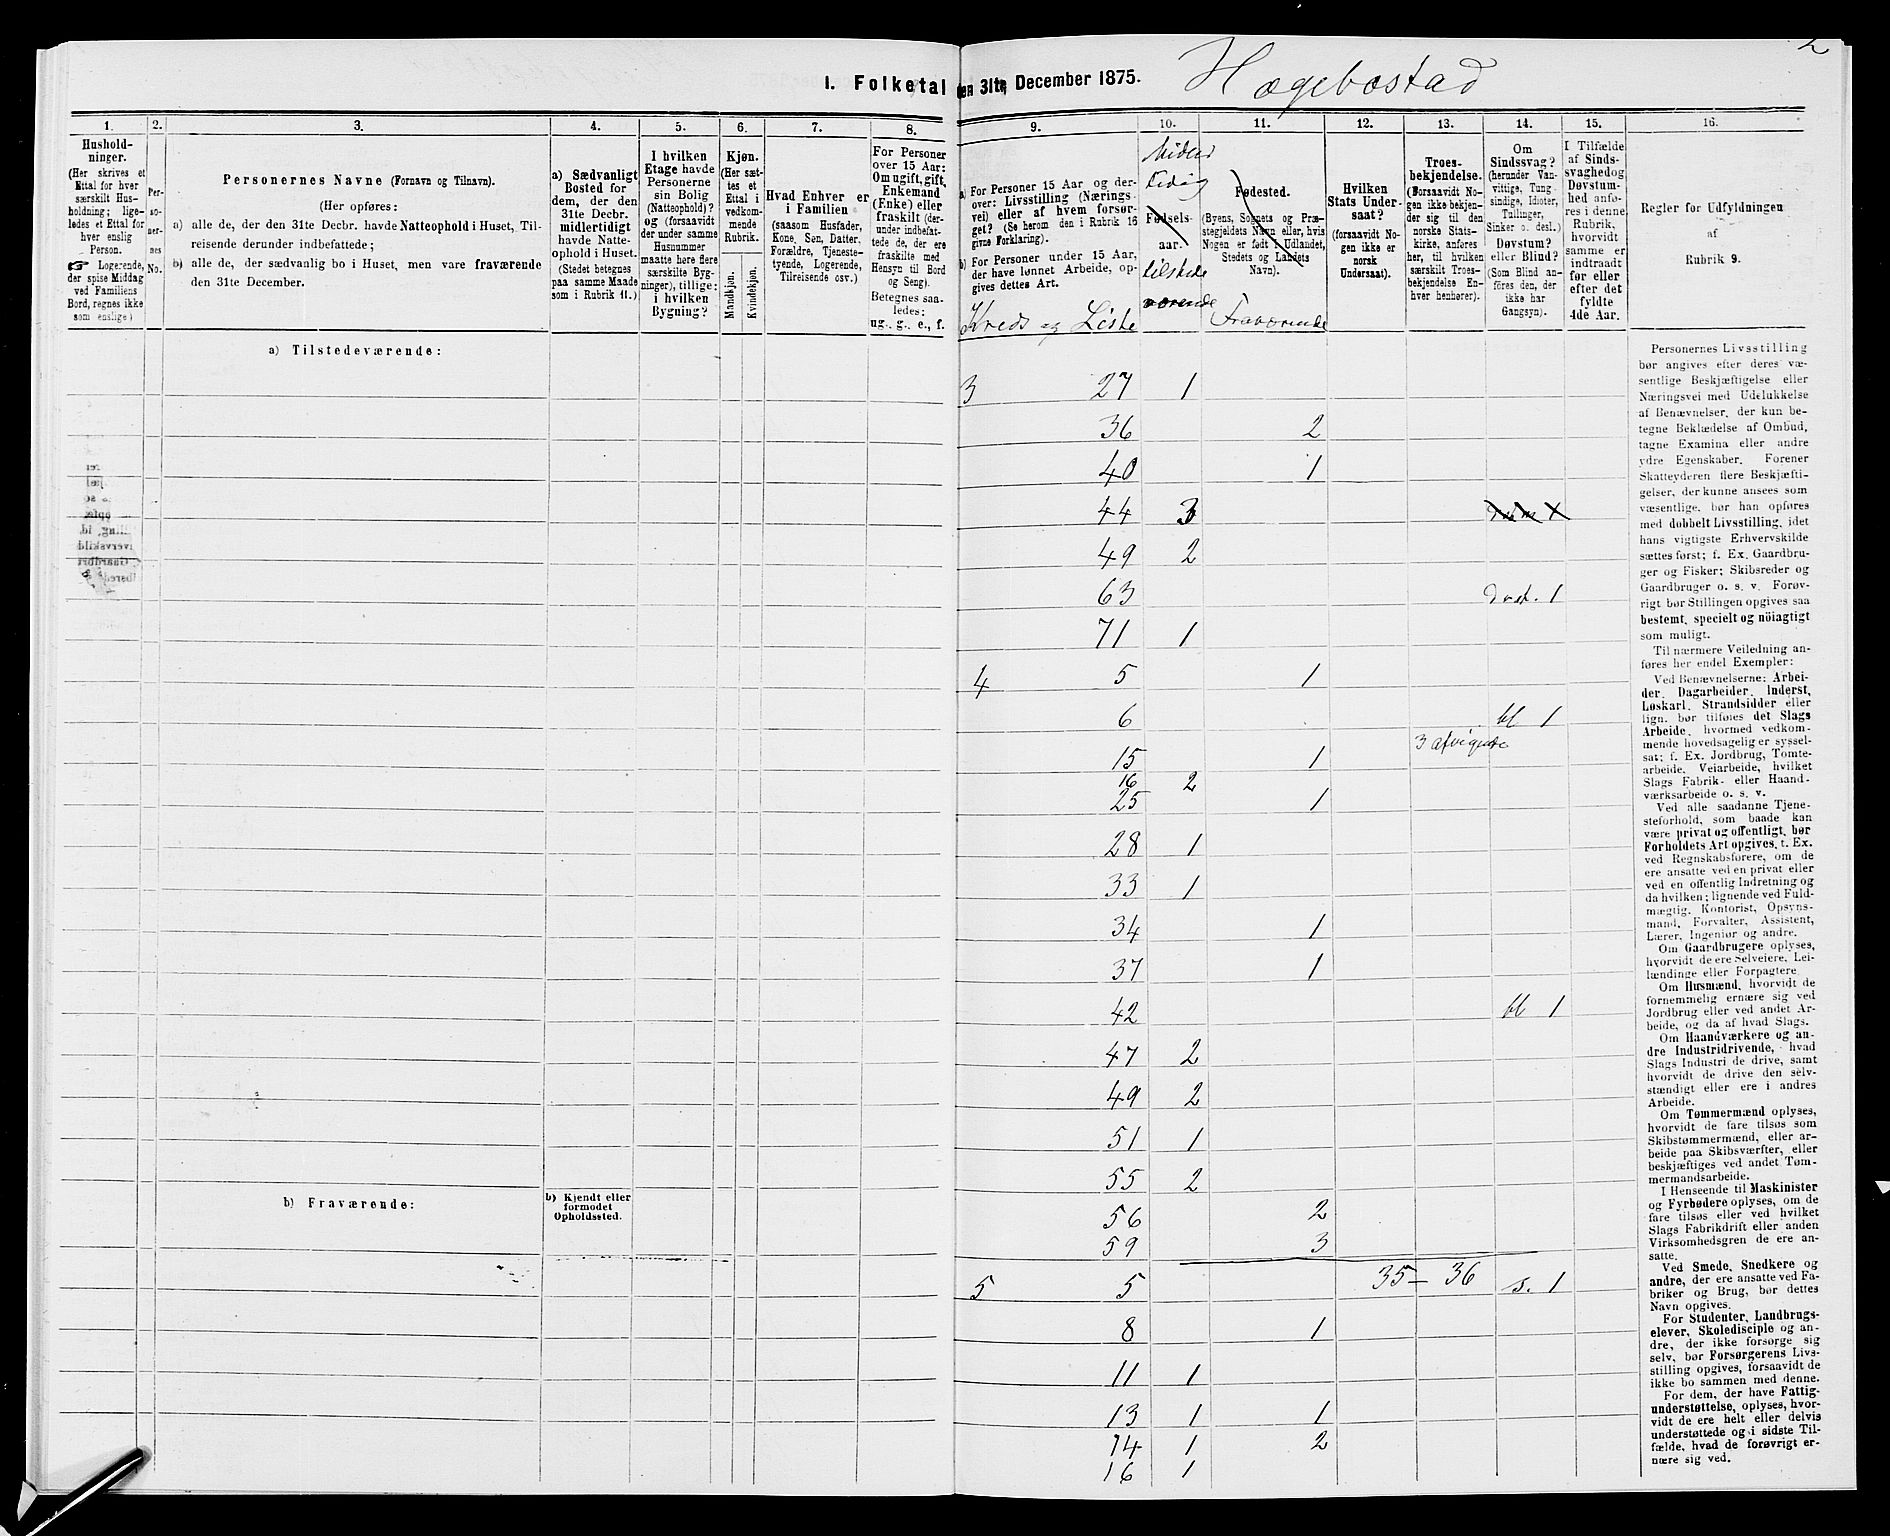 2
I. Folketal den 31te December 1875.
Hægebostad
1.
2.
3.
4.
5.
6.
7.
8.
9.
10.
11.
12.
13.
14.
15.
16.
Hushold-
ninger.
(Her skrives et
Ettal for hver
særskilt Hus-
holdning; lige-
ledes et Ettal for
hver enslig
Person.
☞ Logerende,
der spise Middag
ved Familiens
Bord, regnes ikke
som enslige)
Per-
so-
ner-
nes
No.
Personernes Navne (Fornavn og Tilnavn).
(Her opføres:
a) alle de, der den 31te Decbr. havde Natteophold i Huset, Til-
reisende derunder indbefattede;
b) alle de, der sædvanlig bo i Huset, men vare fraværende
den 31te December.
a) Sædvanligt
Bosted for
dem, der den
31te Decbr.
midlertidigt
havde Natte-
ophold i Huset.
(Stedet betegnes
paa samme Maade
som i Rubrik 11.)
I hvilken
Etage havde
Personerne
sin Bolig
(Natteophold)?
og (forsaavidt
der under samme
Husnummer
maatte here flere
særskilte Byg-
ninger), tillige:
i hvilken
Bygning?
Kjøn.
(Her sæt-
tes et
Ettal i
vedkom-
mende
Rubrik.
Mandkjøn.
Kvindekjøn.
Hvad Enhver er
i Familien
(saasom Husfader,
Kone, Søn, Datter,
Forældre, Tjeneste-
tyende, Logerende,
Tilreisende osv.)
For Personer
over 15 Aar:
Om ugift, gift,
Enkemand
(Enke) eller
fraskilt (der-
under indbefat-
tede de, der ere
fraskilte med
Hensyn til Bord
og Seng).
Betegnes saa-
ledes:
ug., g., e., f.
a) For Personer 15 Aar og der-
over: Livsstilling (Nærings-
vei) eller af hvem forsør-
get? (Se herom den i Rubrik 16
givne Forklaring).
b) For Personer under 15 Aar,
der have lønnet Arbeide, op-
gives dettes Art.
Kreds og Liste
Midler
tidig
Fødsels-
aar.
tilstede
værende
Fødested.
(Byens, Sognets og Præ-
stegjeldets Navn eller, hvis
Nogen er født i Udlandet,
Stedets og Landets
Navn).
Fraværende
Hvilken
Stats Under-
saat?
(forsaavidt No-
gen ikke er
norsk
Undersaat).
Troes-
bekjendelse.
(Forsaavidt No-
gen ikke bekjen-
der sig til den
norske Stats-
kirke, anføres
her, til hvilken
særskilt Troes-
bekjendelse En-
hver henhører).
Om
Sindssvag?
(herunder Van-
vittige, Tung-
sindige, Idioter,
Tullinger,
Sinker o. desl.)
Døvstum?
eller Blind?
(Som Blind an-
føres den, der
ikke har
Gangsyn).
I Tilfælde
af Sinds-
svaghed og
Døvstum-
hed anfø-
res i denne
Rubrik,
hvorvidt
samme er
indtraadt
før eller
efter det
fyldte
4de Aar.
Regler for Udfyldningen
af
Rubrik 9.
a) Tilstedeværende:
b) Fraværende:
b) Kjendt eller
formodet
Opholdssted.
3 27 1
36 2
40 1
44 3
49 2
63 1
71 1
4 5 1
6 bl 1
3 afvigende
15 1
16 2
25 1
28 1
33 1
34 1
37 1
42 bl 1
47 2
49 2
51 1
55 2
56 2
59 3
5 5 35 - 36 s. 1
8 1
11 1
13 1 1
14 1 2
16 1
Personernes Livsstilling
bør angives efter deres væ-
sentlige Beskjæftigelse eller
Næringsvei med Udelukkelse
af Benævnelser, der kun be-
tegne Beklædelse af Ombud,
tagne Examina eller andre
ydre Egenskaber. Forener
Skatteyderen flere Beskjæfti-
gelser, der kunne ansees som
væsentlige, bør han opføres
med dobbelt Livsstilling, idet
hans vigtigste Erhvervskilde
sættes først; f. Ex. Gaardbru-
ger og Fisker; Skibsreder og
Gaardbruger o. s. v. Forøv-
rigt bør Stillingen opgives saa
bestemt, specielt og nöiagtigt
som muligt.
Til nærmere Veiledning an-
føres her endel Exempler:
Ved Benævnelserne: Arbei-
der, Dagarbeider, Inderst,
Løskarl, Strandsidder eller
lign. bør tilføies det Slags
Arbeide, hvormed vedkom-
mende hovedsagelig er syssel-
sat; f. Ex. Jordbrug, Tomte-
arbeide, Veiarbeide, hvilket
Slags Fabrik- eller Haand-
værksarbeide o. s. v.
Ved alle saadanne Tjene-
steforhold, som baade kan
være privat og offentligt, bør
Forholdets Art opgives, t. Ex.
ved Regnskabsførere, om de
ere ansatte ved en privat eller
ved en offentlig Indretning og
da hvilken; lignende ved Fuld-
mægtig, Kontorist, Opsyns-
mand, Forvalter, Assistent,
Lærer, Ingeniør og andre.
Om Gaardbrugere oplyses,
hvorvidt de ere Selveiere, Lei-
lændinge eller Forpagtere.
Om Husmænd, hvorvidt de
fornemmelig ernære sig ved
Jordbrug eller ved andet Ar-
beide, og da af hvad Slags.
Om Haandværkere og an-
dre Industridrivende, hvad
Slags Industri de drive, samt
hvorvidt de drive den selv-
stændigt eller ere i andres
Arbeide.
Om Tømmermænd oplyses,
hvorvidt de fare tilsøs som
Skibstømmermænd, eller ar-
beide paa Skibsværfter, eller
beskjæftiges ved andet Tøm-
mermandsarbeide.
I Henseende til Maskinister
og Fyrbødere oplyses, om de
fare tilsøs eller ved hvilket
Slags Fabrikdrift eller anden
Virksomhedsgren de ere an-
satte.
Ved Smede, Snedkere og
andre, der ere ansatte ved Fa-
briker og Brug, bør dettes
Navn opgives.
For Studenter, Landbrugs-
elever, Skoledisciple og an-
dre, der ikke forsørge sig
selv, bør Forsørgerens Livs-
stilling opgives, forsaavidt de
ikke bo sammen med denne.
For dem, der have Fattig-
understøttelse, oplyses, hvor-
vidt de ere helt eller delvis
understøttede og i sidste Til-
fælde, hvad de forøvrigt er-
nære sig ved.